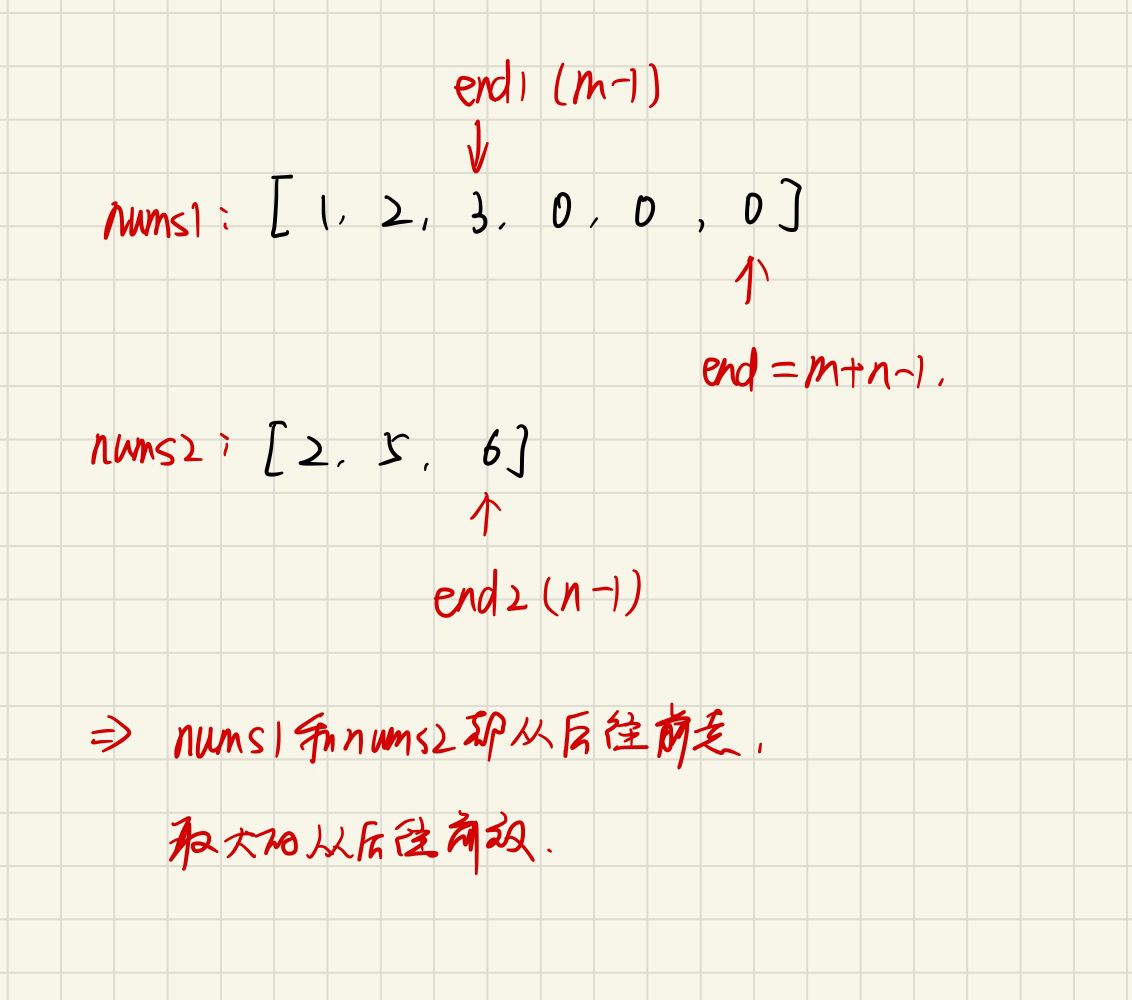 end1 (m-1)
↓
nums1: [1, 2, 3, 0, 0, 0]
↑
end = m+n-1.
nums2: [2, 5, 6]
↑
end2 (n-1)
⇒ nums1和nums2都从后往前走,
取大的从后往前放.